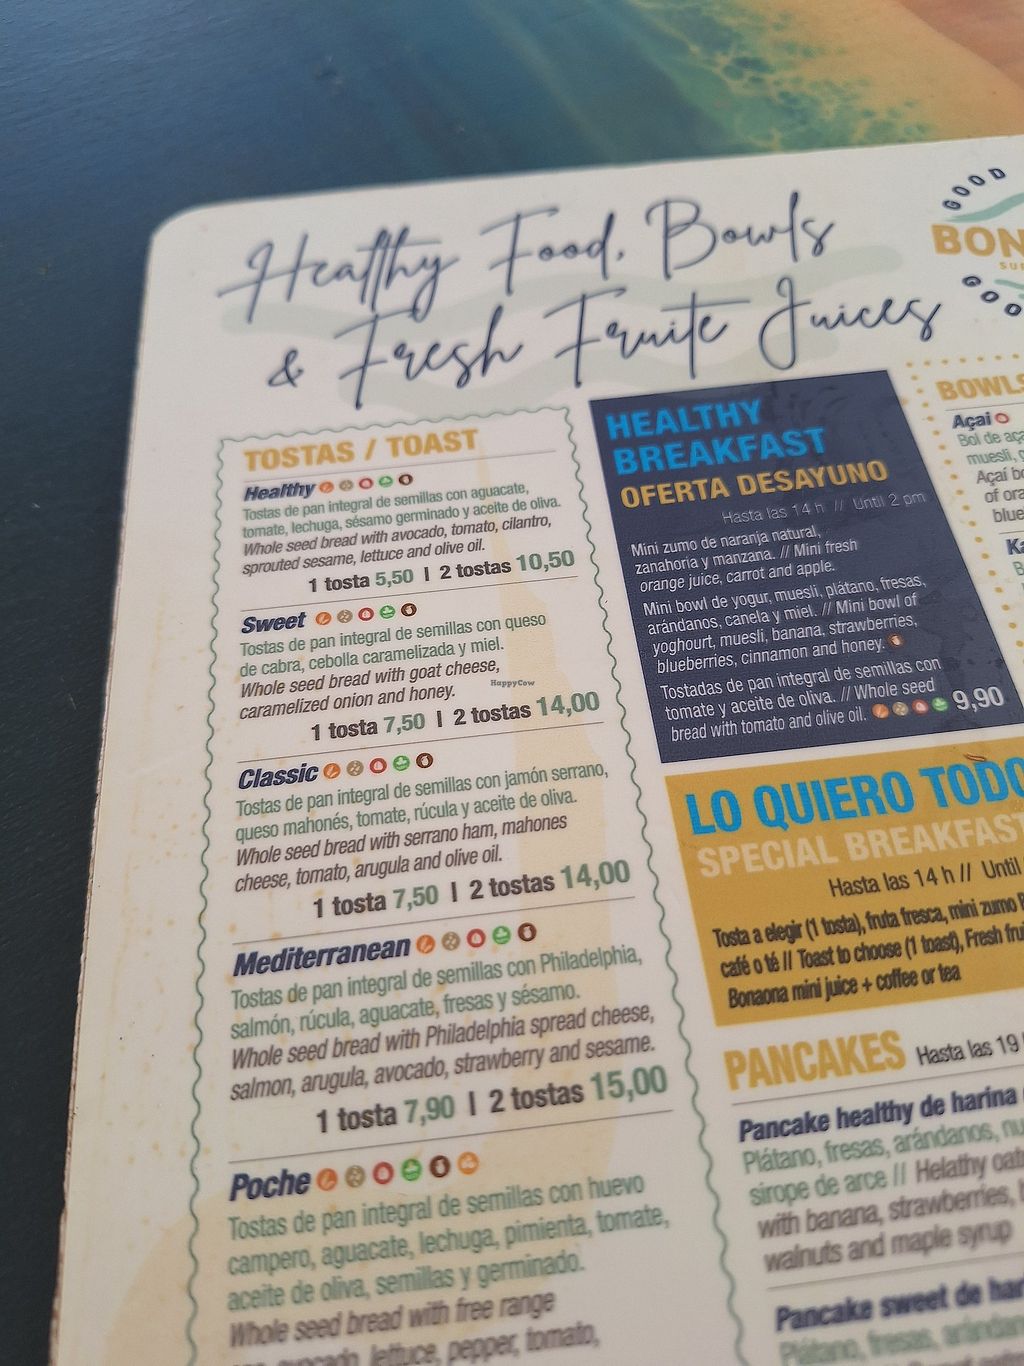 Healthy Food, Bowls
& Fresh Fruite Juices
GOOD
BON
GOO
TOSTAS / TOAST
Healthy
Tostas de pan integral de semillas con aguacate,
tomate, lechuga, sésamo germinado y aceite de oliva.
Whole seed bread with avocado, tomato, cilantro,
sprouted sesame, lettuce and olive oil.
1 tosta 5,50 I 2 tostas 10,50
Sweet
Tostas de pan integral de semillas con queso
de cabra, cebolla caramelizada y miel.
Whole seed bread with goat cheese,
caramelized onion and honey.
1 tosta 7,50 I 2 tostas 14,00
Classic
Tostas de pan integral de semillas con jamón serrano,
queso mahonés, tomate, rúcula y aceite de oliva.
Whole seed bread with serrano ham, mahones
cheese, tomato, arugula and olive oil.
1 tosta 7,50 I 2 tostas 14,00
Mediterranean
Tostas de pan integral de semillas con Philadelphia,
salmón, rúcula, aguacate, fresas y sésamo.
Whole seed bread with Philadelphia spread cheese,
salmon, arugula, avocado, strawberry and sesame.
1 tosta 7,90 I 2 tostas 15,00
Poche
Tostas de pan integral de semillas con huevo
campero, aguacate, lechuga, pimienta, tomate,
aceite de oliva, semillas y germinado.
Whole seed bread with free range
avocado, lettuce, pepper, tomato,
HEALTHY
BREAKFAST
OFERTA DESAYUNO
Hasta las 14 h // Until 2 pm
Mini zumo de naranja natural,
zanahoria y manzana. // Mini fresh
orange juice, carrot and apple.
Mini bowl de yogur, muesli, plátano, fresas,
arándanos, canela y miel. // Mini bowl of
yoghourt, muesli, banana, strawberries,
blueberries, cinnamon and honey.
Tostadas de pan integral de semillas con
tomate y aceite de oliva. // Whole seed
bread with tomato and olive oil. 9,90
LO QUIERO TODO
SPECIAL BREAKFAST
Hasta las 14 h // Until
Tosta a elegir (1 tosta), fruta fresca, mini zumo B
café o té // Toast to choose (1 toast), Fresh fru
Bonaona mini juice + coffee or tea
PANCAKES Hasta las 19
Pancake healthy de harina
Plátano, fresas, arándanos, nu
sirope de arce // Helathy oat
with banana, strawberries,
walnuts and maple syrup
Pancake sweet de har
Plátano, fresas, arándan
BOWLS
Açai
Bol de aça
muesli,
Açaí bo
of ora
blue
Ka
B
HappyCow